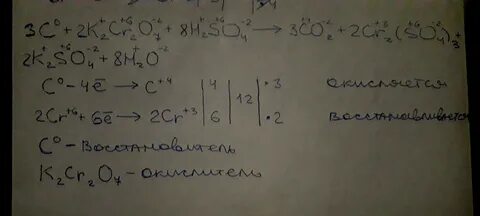 3C⁰ + 2K₂⁺Cr₂⁺⁶O₇⁻² + 8H₂⁺S⁺⁶O₄⁻² → 3C⁺⁴O₂⁻² + 2Cr₂⁺³(S⁺⁶O₄⁻²)₃ +
2K₂⁺S⁺⁶O₄⁻² + 8H₂⁺O⁻²
C⁰ - 4ē → C⁺⁴ | 4 | 12 | · 3 окисляется
2Cr⁺⁶ + 6ē → 2Cr⁺³ | 6 | | · 2 восстанавливается
C⁰ - восстановитель
K₂Cr₂O₇ - окислитель